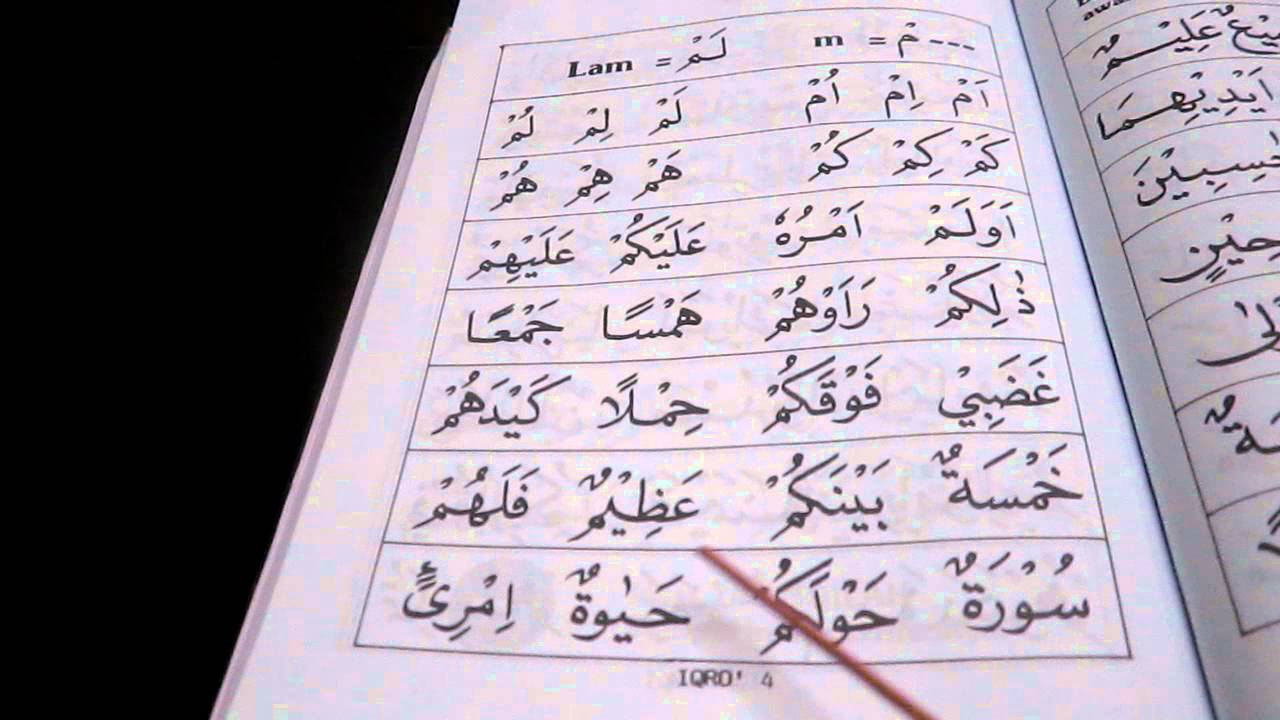 --- مْ = m لَمْ = Lam
اَمْ اِمْ اُمْ لَمْ لِمْ لُمْ
كَمْ كِمْ كُمْ هَمْ هِمْ هُمْ
اَوَلَمْ اَمْرُهٗ عَلَيْكُمْ عَلَيْهِمْ
ذٰلِكُمْ رَاَوْهُمْ هَمْسًا جَمْعًا
غَضَبِيْ فَوْقَكُمْ حِمْلًا كَيْدَهُمْ
خَمْسَةٌ بَيْنَكُمْ عَظِيْمٌ فَلَهُمْ
سُوْرَةٌ حَوْلَكُمْ حَيٰوةٌ اِمْرِئٍ
IQRO' 4
عَلِيْمٌ
اَيْدِيْهِمَا